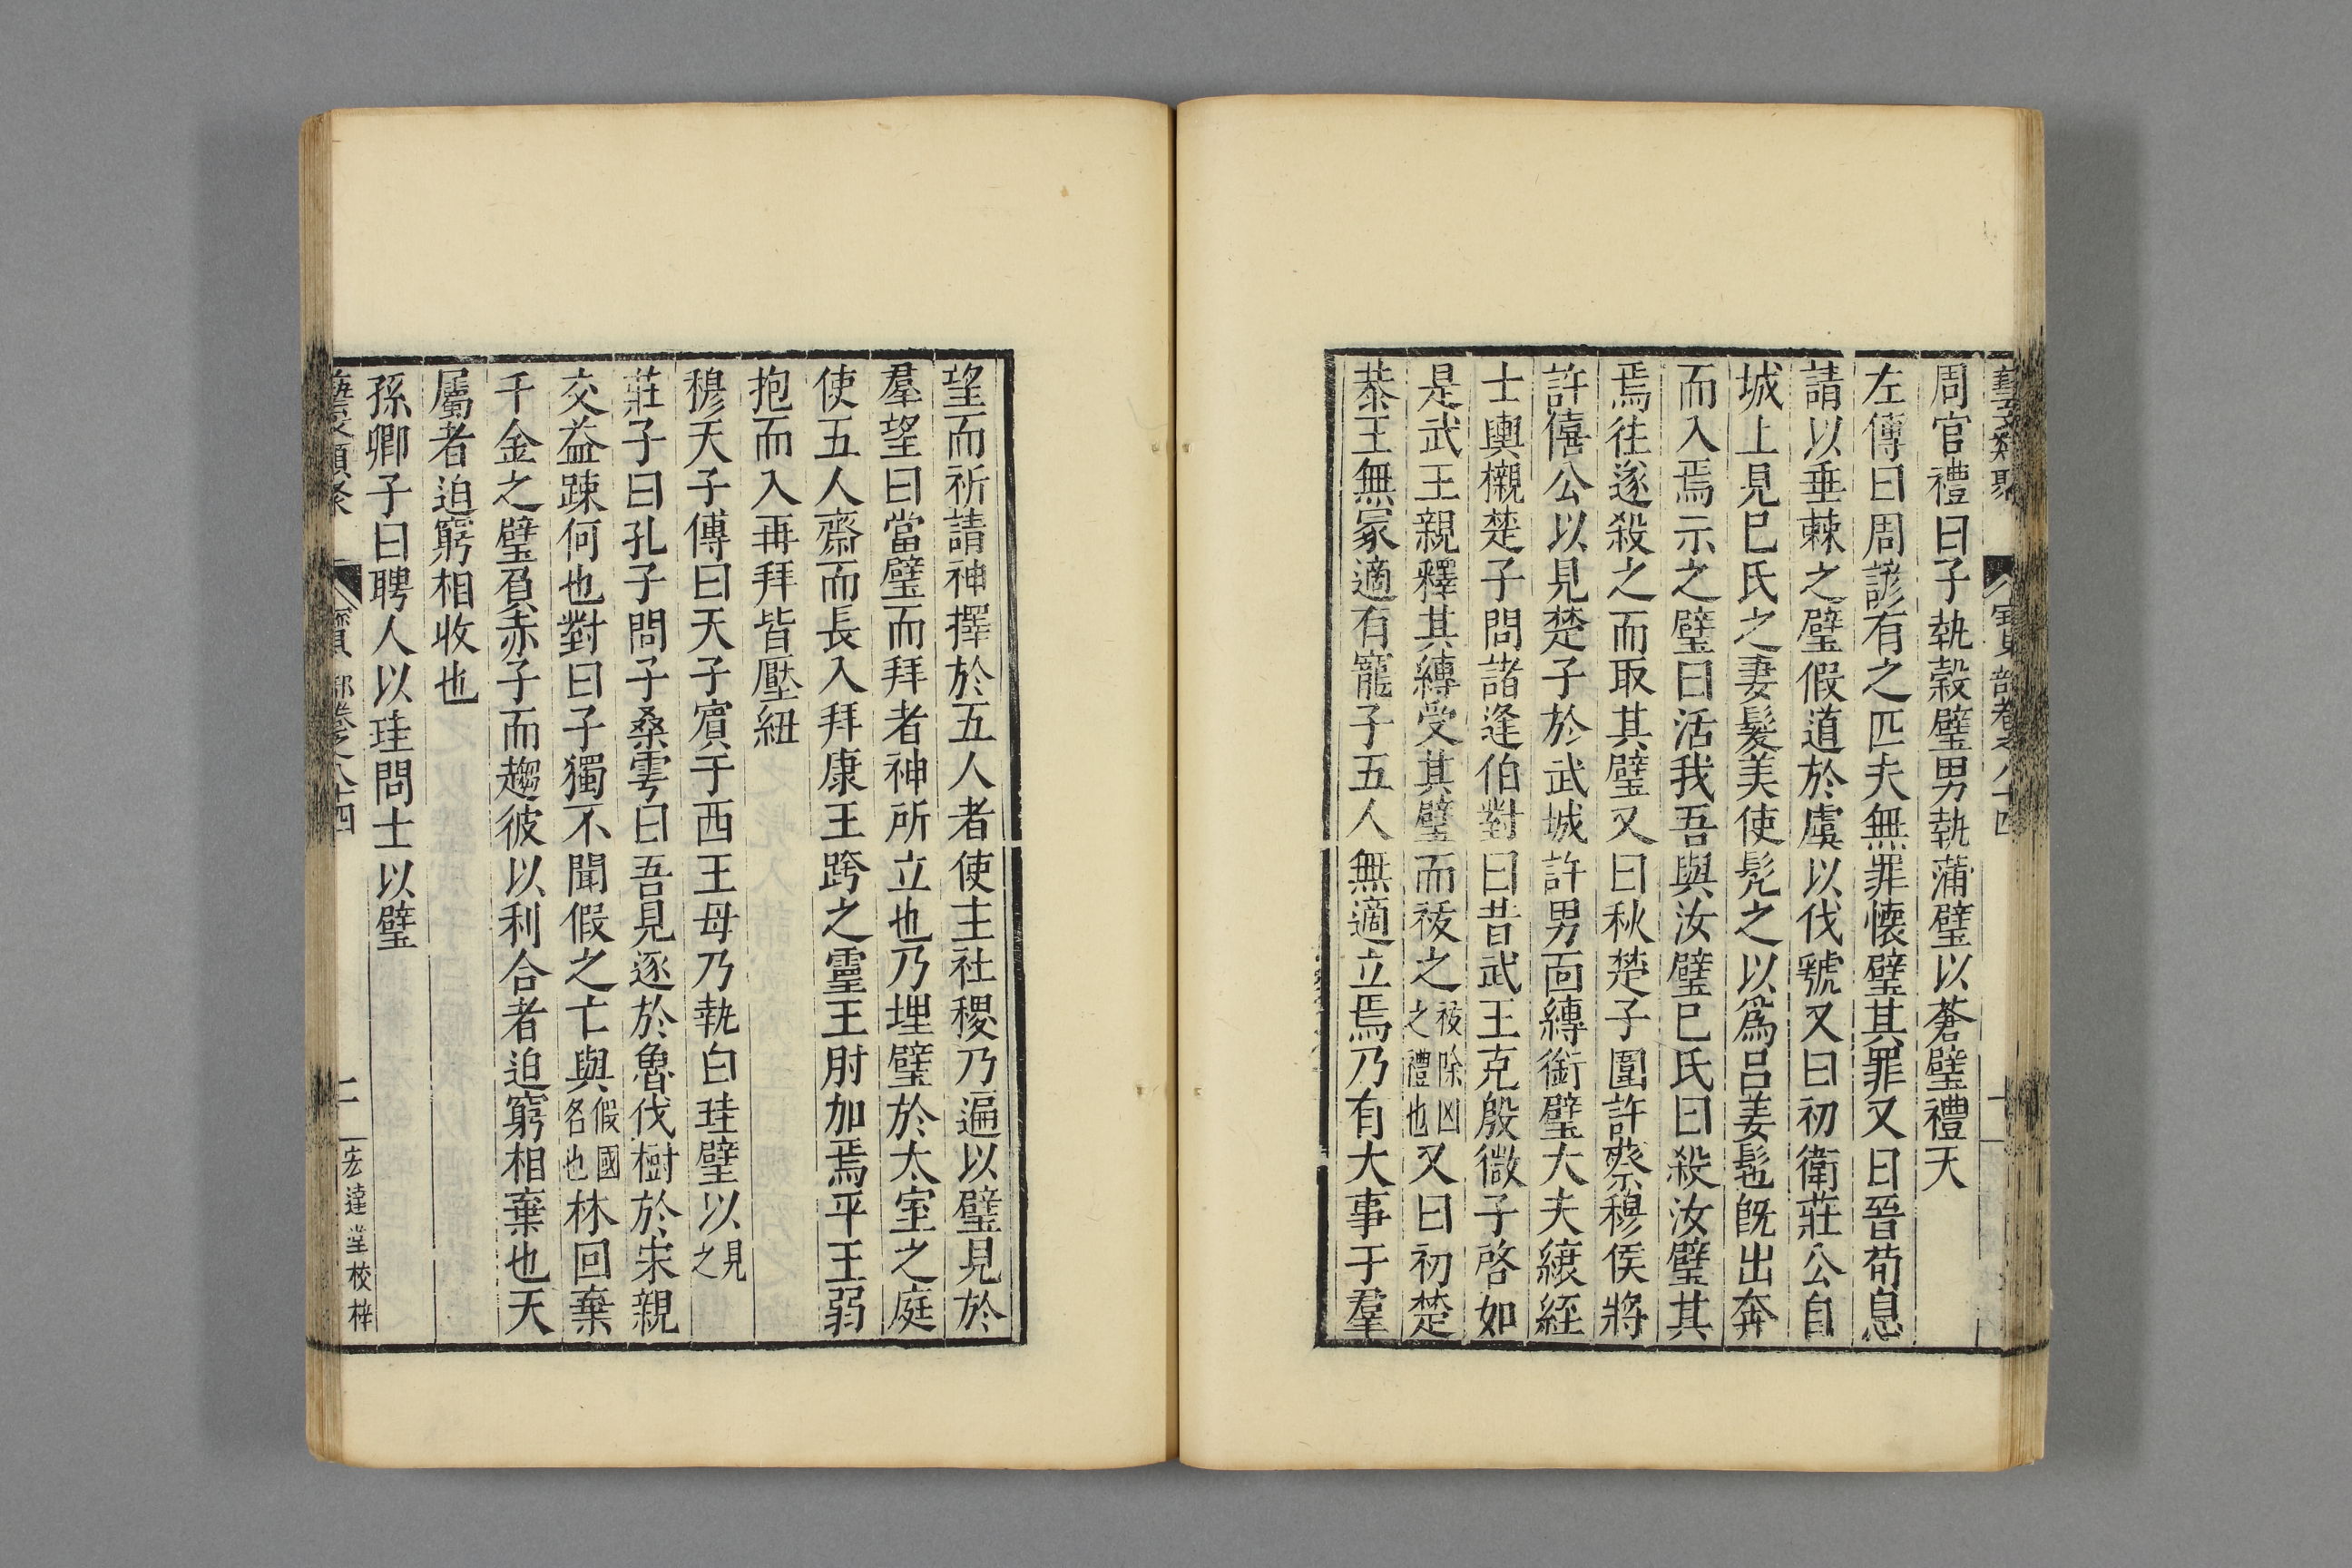 周官禮曰子執穀璧男執蒲璧以蒼璧禮天
左傳曰周諺有之匹夫無罪懷璧其罪又曰晉荀息
請以垂棘之璧假道於虞以伐虢又曰初衛莊公自
城上見巳氏之妻髮美使髠之以爲呂姜髢旣出奔
而入焉示之璧曰活我吾與汝璧巳氏曰殺汝璧其
焉往遂殺之而取其璧又曰秋楚子圍許蔡穆侯將
許僖公以見楚子於武城許男面縛銜璧大夫縗絰
士輿櫬楚子問諸逢伯對曰昔武王克殷微子啓如
是武王親釋其縛受其璧而祓之祓除凶之禮也又曰初楚
恭王無冢適有寵子五人無適立焉乃有大事于羣
望而祈請神擇於五人者使主社稷乃遍以璧見於
羣望曰當璧而拜者神所立也乃埋璧於太室之庭
使五人齋而長入拜康王跨之靈王肘加焉平王弱
抱而入再拜皆壓紐
穆天子傳曰天子賓于西王母乃執白珪璧以見之
莊子曰孔子問子桑雽曰吾見逐於魯伐樹於宋親
交益踈何也對曰子獨不聞假之亡與假國名也林回棄
千金之璧負赤子而趨彼以利合者迫窮相棄也天
屬者迫窮相收也
孫卿子曰聘人以珪問士以璧
二 宏達堂校梓